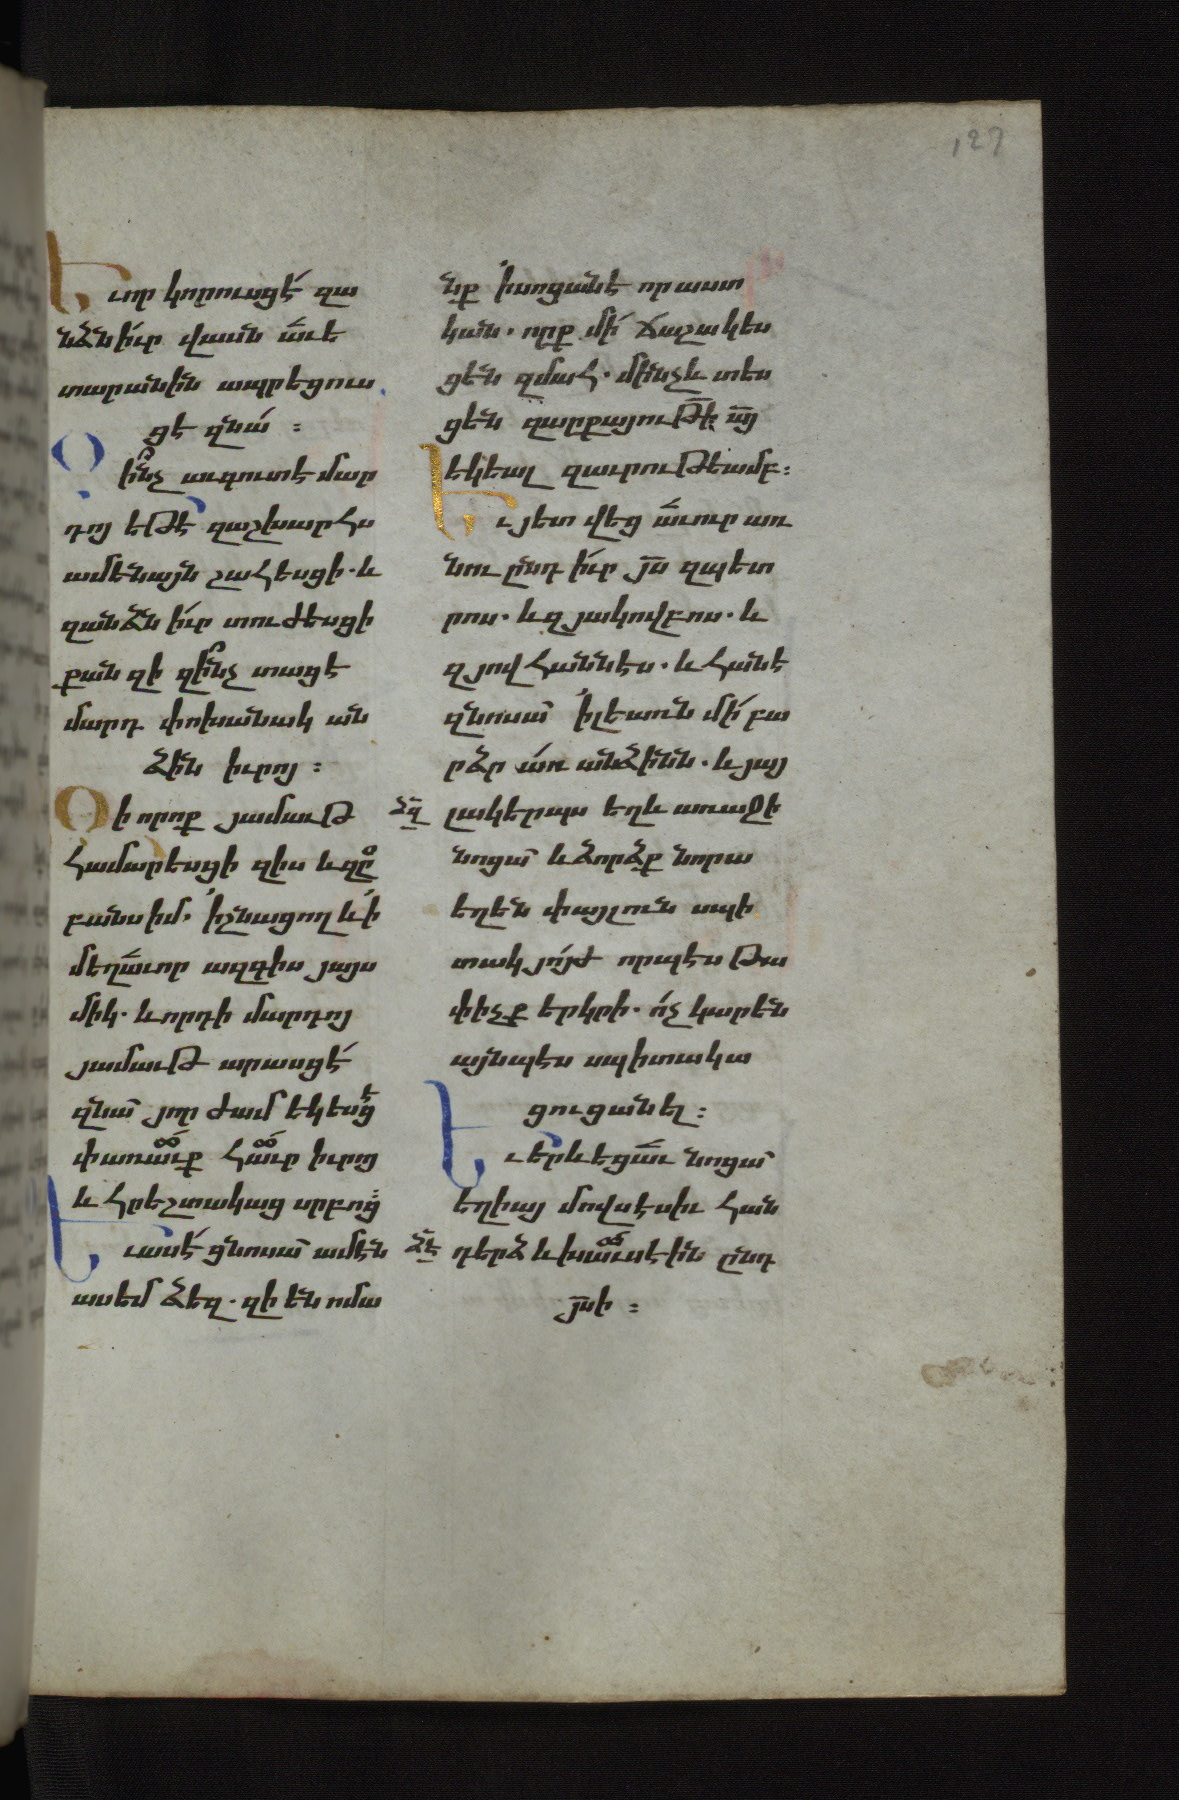 127
Եւ որ կորուսցէ զա
նձն իւր վասն աւե
տարանին ապրեցուս
ցէ զնա ։
Զինչ աւգուտէ մար
դոյ եթէ զաշխարհս
ամենայն շահեսցի ․ և
զանձն իւր տուժեսցի
քանզի զինչ տացէ
մարդ փոխանակ ան
ձին իւրոյ ։
Զի որ ոք յամաւթ
համարեսցի զիս և զը
բանս իմ ․ ի շնացող և ի
մեղաւոր ազգիս յայս
միկ ․ և որդի մարդոյ
յամաւթ արասցէ
զնա յոր ժամ եկեսցէ
փառաւք հաւր իւրոյ
և հրեշտակաց սրբոց ։
Եւ ասէ ցնոսա ամէն
ասեմ ձեզ ․ զի են ոմա
նք ի սոցանէ որ աստ
կան ․ որք մի ճաշակես
ցեն զմահ ․ մինչև տես
ցեն զարքայութի այ
եկեալ զաւրութեամբ ։
Եւ յետ վեց աւուր առ
նու ընդ իւր յս զպետ
րոս ․ և զյակովբոս ․ և
զյովհաննէս ․ և հանէ
զնոսա ի լեառն մի բա
րձր առ անձինն ․ և յայ
ձզ լակերպս եղև առաջի
նոցա և ձորձք նորա
եղեն փայլուն սպի
տակ յոյժ որպէս թա
փիչք երկրի ․ ոչ կարեն
այնպէս սպիտակա
ցուցանել ։
Եւ երևեցաւ նոցա
եղիայ մովսէսիւ հան
ձէ դերձ և խաւսէին ընդ
յսի ։